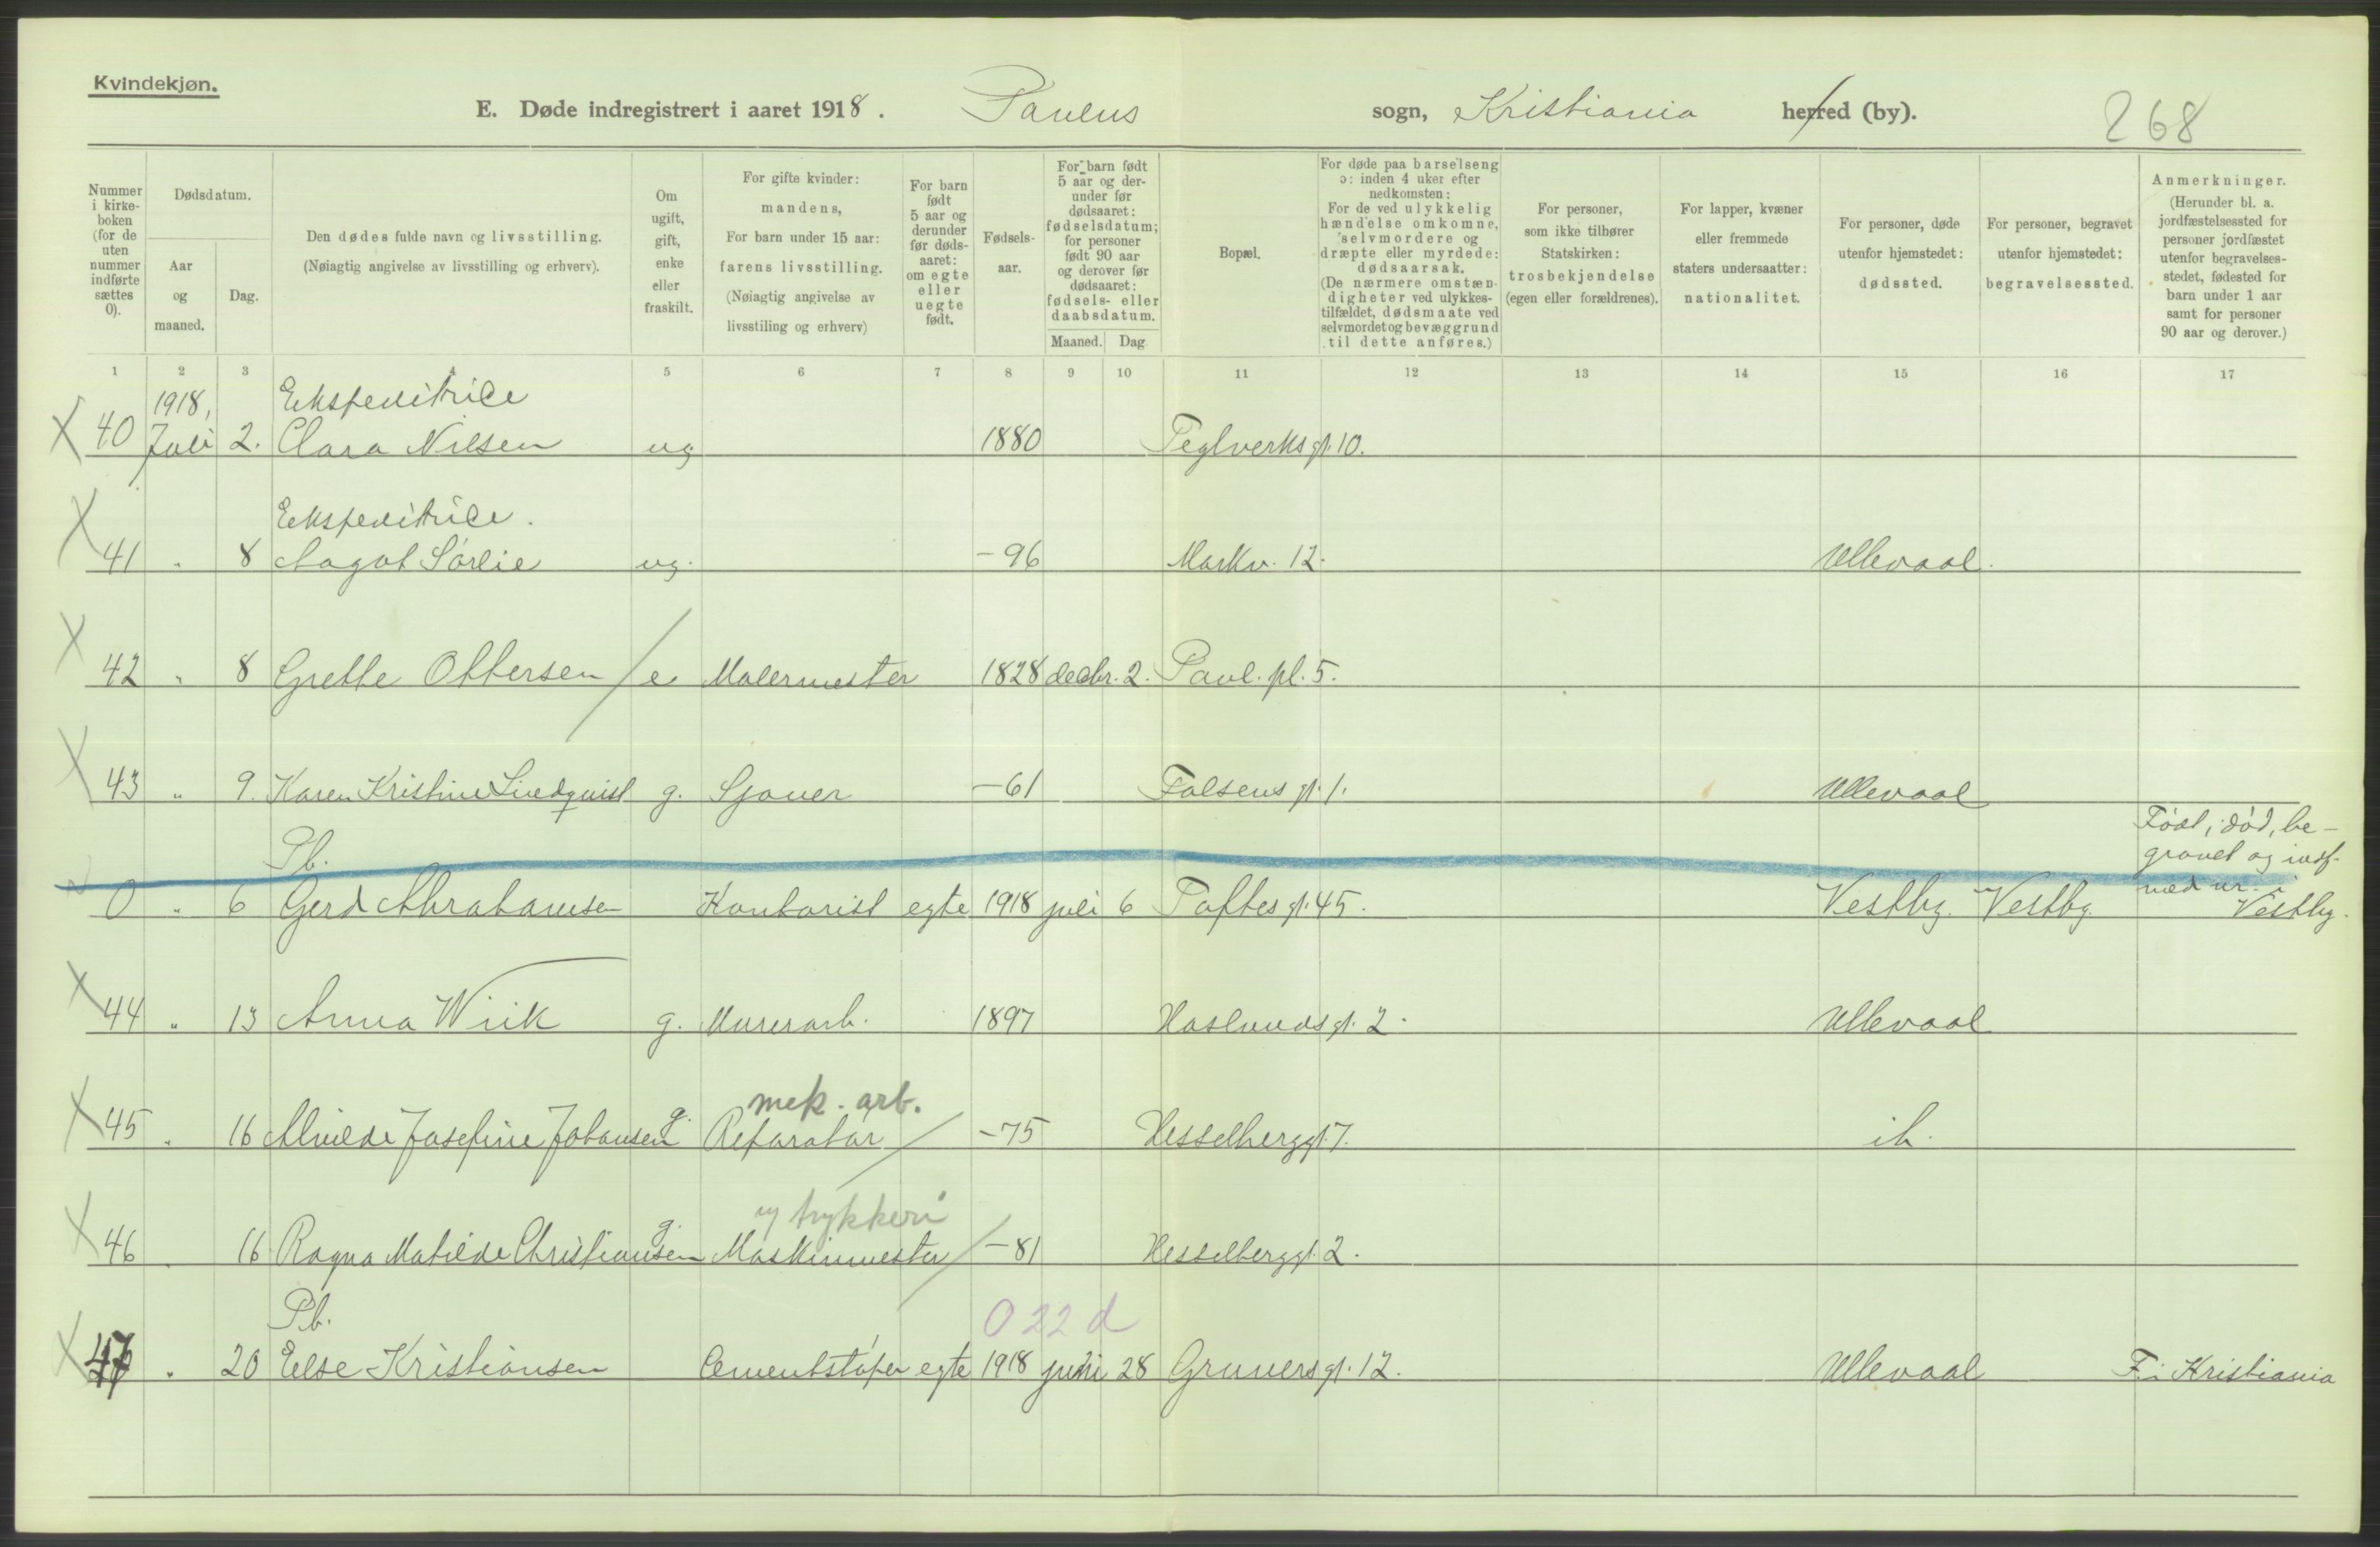 Kvindekjøn.
E. Døde indregistrert i aaret 1918. Paulus sogn, Kristiania herred (by). 268
Nummer i kirke-boken (for de uten nummer indførte sættes 0).
Dødsdatum.
Aar og maaned.
Dag.
Den dødes fulde navn og livsstilling.
(Nøiagtig angivelse av livsstilling og erhverv).
Om ugift, gift, enke eller fraskilt.
For gifte kvinder: mandens,
For barn under 15 aar: farens livsstilling.
(Nøiagtig angivelse av livsstiling og erhverv)
For barn født 5 aar og derunder før døds-aaret: om egte eller uegte født.
Fødsels-aar.
For barn født 5 aar og der-under før dødsaaret: fødselsdatum; for personer født 90 aar og derover før dødsaaret: fødsels- eller daabsdatum.
Maaned. Dag
Bopæl.
For døde paa barselseng ɔ: inden 4 uker efter nedkomsten:
For de ved ulykkelig hændelse omkomne, selvmordere og dræpte eller myrdede: dødsaarsak.
(De nærmere omstæn-digheter ved ulykkes-tilfældet, dødsmaate ved selvmordet og bevæggrund til dette anføres.)
For personer, som ikke tilhører Statskirken: trosbekjendelse (egen eller forældrenes).
For lapper, kvæner eller fremmede staters undersaatter: nationalitet.
For personer, døde utenfor hjemstedet: dødssted.
For personer, begravet utenfor hjemstedet: begravelsessted.
Anmerkninger.
(Herunder bl. a. jordfæstelsessted for personer jordfæstet utenfor begravelses-stedet, fødested for barn under 1 aar samt for personer 90 aar og derover.)
1 2 3 4 5 6 7 8 9 10 11 12 13 14 15 16 17
1918, Ekspeditrice
40 Juli 2. Clara Nilsen ug 1880 Teglverksgt. 10.
Ekspeditrice.
41 " 8 Aagot Sørlie ug. -96 Markv. 12. Ullevaal.
42 " 8 Grethe Ottersen e Malermester 1828 decbr. 2. Paul. pl. 5.
43 " 9. Karen Kristine Lindquist g. Sjauer -61 Falsens gt. 1. Ullevaal
Pb. Født, død, be-
gravet og indf.
med nr. i
0 " 6 Gerd Abrahamsen Kontorist egte 1918 juli 6 Toftes gt. 45. Vestby. Vestby. Vestby.
44 " 13 Anna Wiik g. Murerarb. 1897 Haslunds gt. 2. Ullevaal
mek. arb.
45 " 16 Alvilde Josefine Johansen g. Reparatør -75 Hesselberggt. 7. ib.
trykkeri
46 " 16 Ragna Matilde Christiansen g. Maskinmester -81 Hesselberggt. 2.
Pb. 0 22 d
47 " 20 Else Kristiansen Cementstøper egte 1918 juni 28 Gruners gt. 12. Ullevaal F. i Kristiania